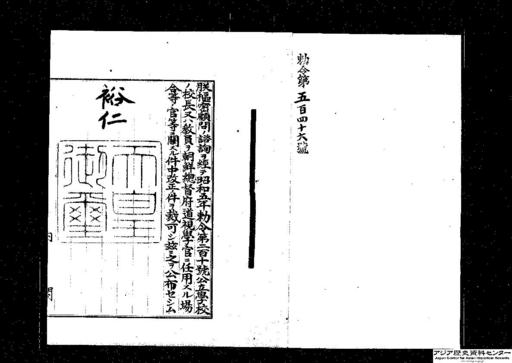 勅令第五百四十六號
朕樞密顧問ノ諮詢ヲ經テ昭和五年勅令第二百十號公立學校
ノ校長又ハ教員ヲ朝鮮總督府道視學官ニ任用スル場
合等ノ官等ニ關スル件中改正ノ件ヲ裁可シ茲ニ之ヲ公布セシム
裕仁
天皇
御璽
内閣
アジア歴史資料センター
Japan Center for Asian Historical Records